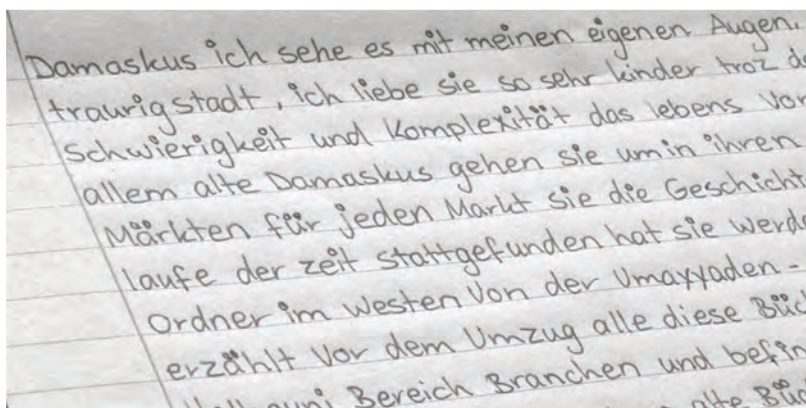 Damaskus ich sehe es mit meinen eigenen Augen.
traurig stadt, ich liebe sie so sehr kinder troz
Schwierigkeit und Komplexität das lebens
allem alte Damaskus gehen sie umin ihren
Märkten für jeden Markt sie die
laufe der zeit stattgefunden hat sie
Ordner im Westen von der Umayyaden-
erzählt vor dem Umzug alle diese
Bereich Branchen und
alte